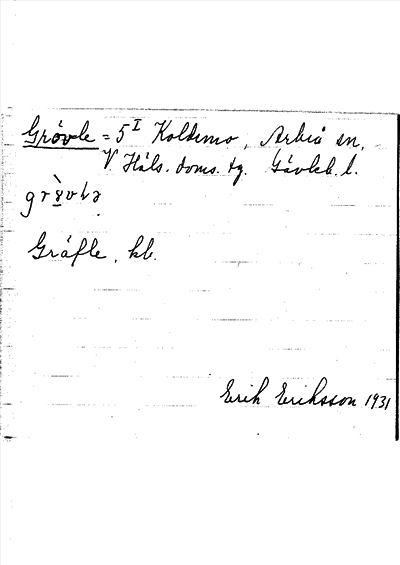 Gróvle = 5 I Koldemo, Arbrå sn,
V Häls. doms. tg. Gävleb. l.
Gráfle, kb.
Erik Eriksson 1931